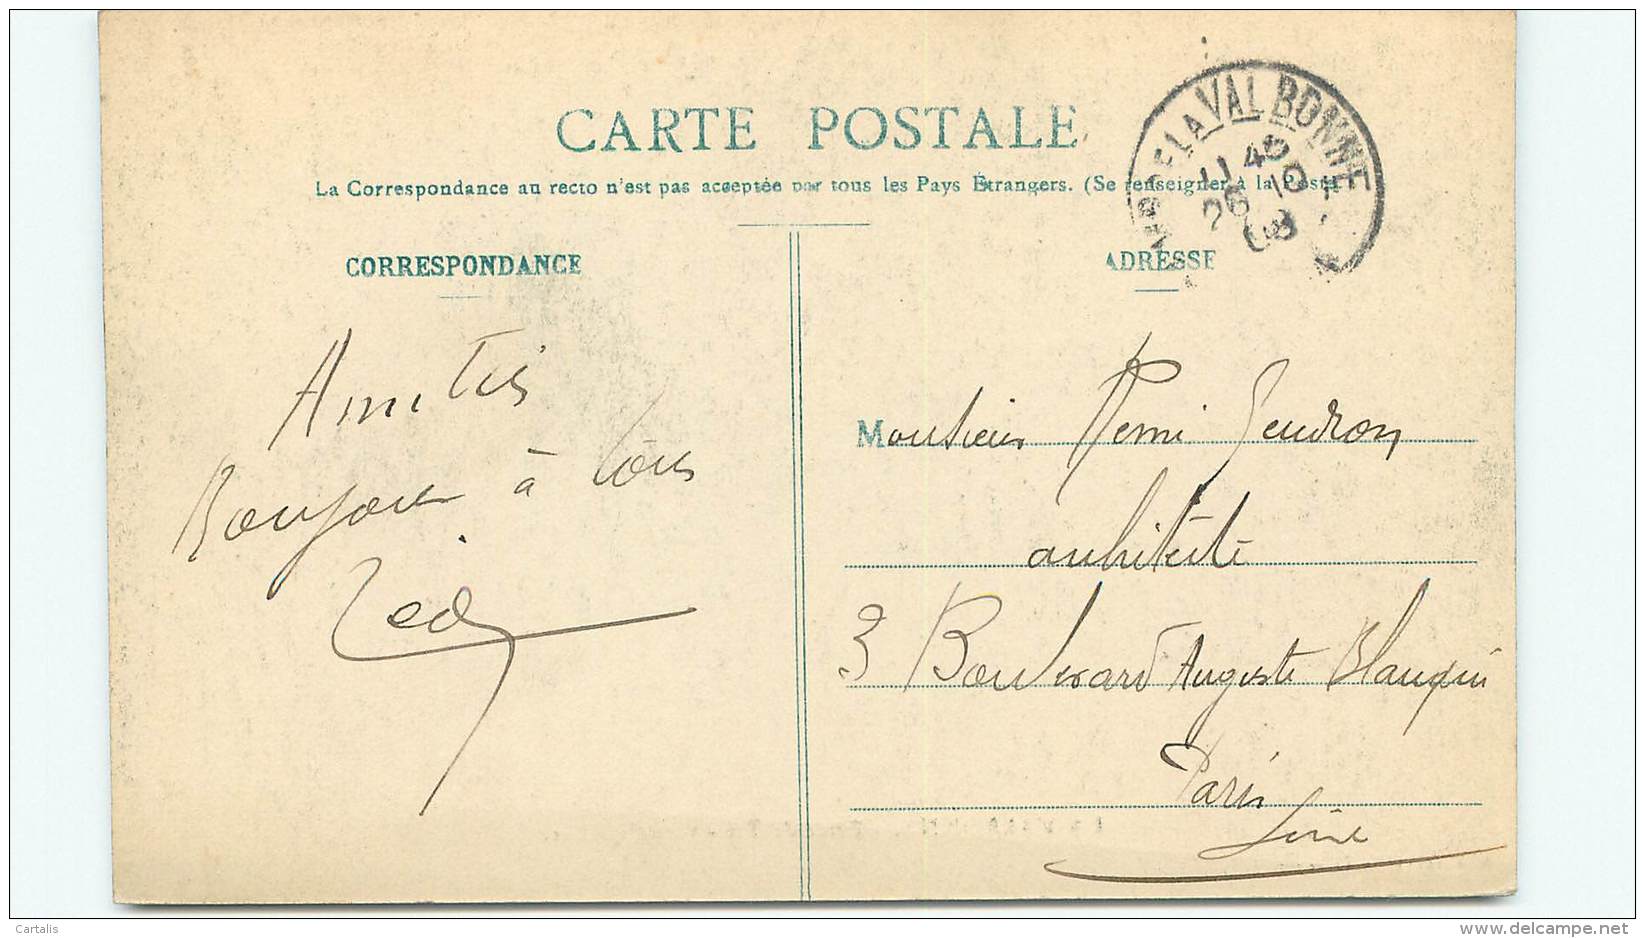 CARTE POSTALE
La Correspondance au recto n'est pas acceptée par tous les Pays Étrangers. (Se renseigner à la Poste)
LA VALBONNE
11 45
26 10
08
CORRESPONDANCE
ADRESSE
Amitiés
Bonjour à tous
Monsieur Remi Gendron
architecte
3 Boulevard Auguste Blanqui
Paris
Seine
Cartalis
delcampe.net